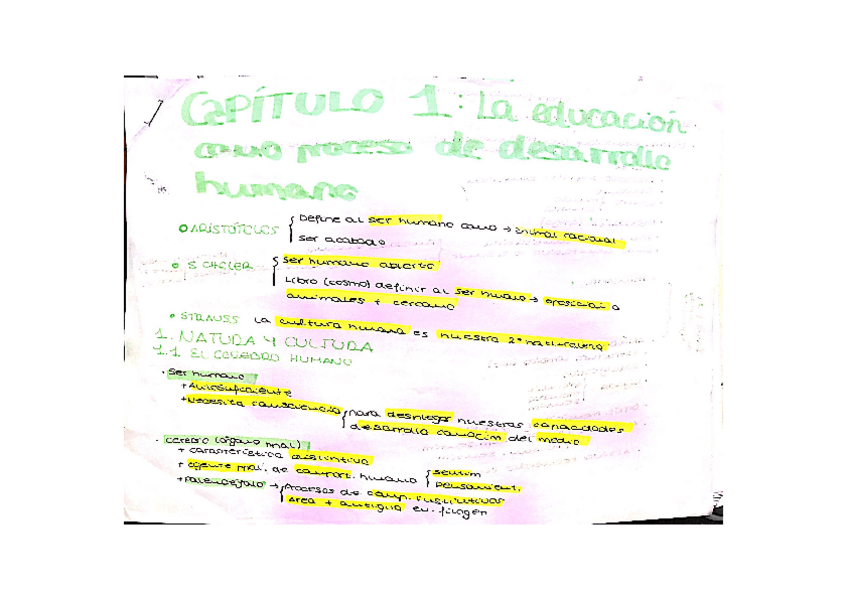 CAPÍTULO 1: La educación
como proceso de desarrollo
humano
ARISTÓTELES Define al ser humano como → animal racional
ser acabado
SCHELER ser humano abierto
Libro (cosmo) definir al ser humano → oposición a
animales + cercano
STRAUSS La cultura humana es nuestra 2ª naturaleza
1. NATUDA Y CULTURA
1.1 EL CEREBRO HUMANO
· Ser humano
+ Autosuficiente
+ Necesita consciencia para desplegar nuestras capacidades
desarrolla conocim del medio
· Cerebro (órgano pnal)
+ característica distintiva
+ agente pnal. de comport. humano sentim
pensamient.
+ Palencéfalo → Procesos de comp. instintivos
Área + antigua ev. filogen